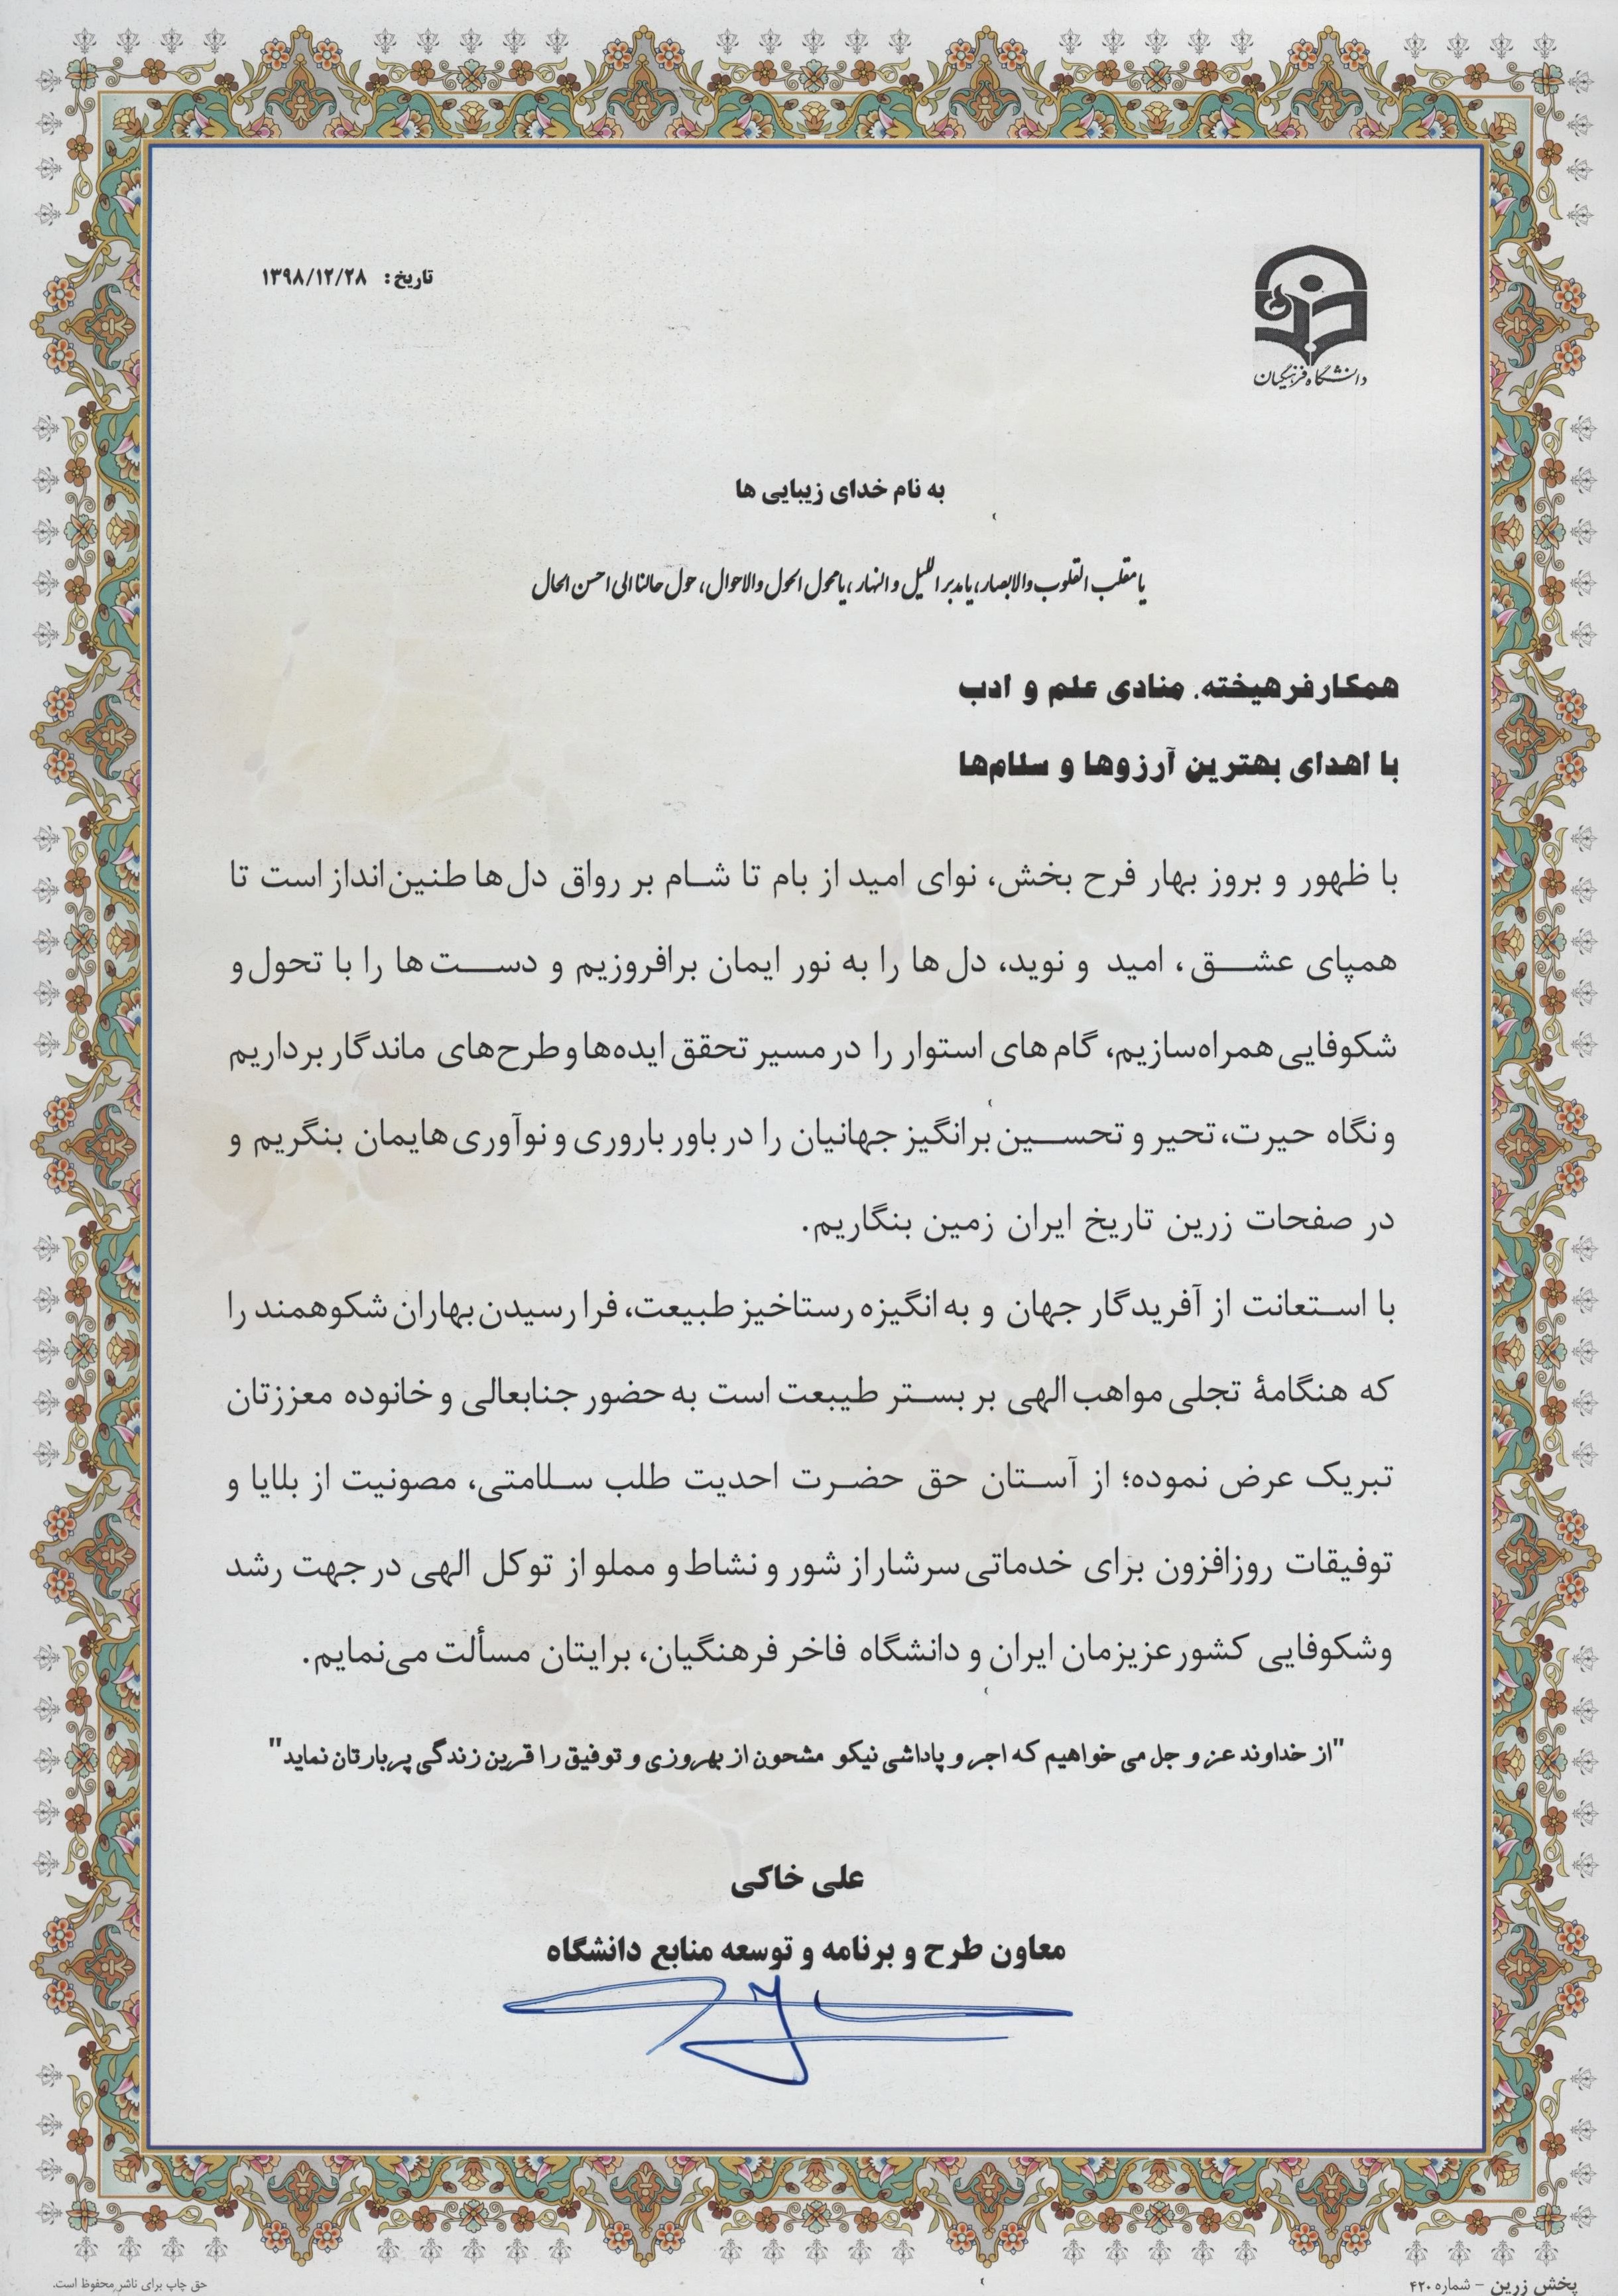 تاریخ: ۱۳۹۸/۱۲/۲۸
دانشگاه فرهنگیان
به نام خدای زیبایی ها
یا مقلب القلوب والابصار، یا مدبر اللیل و النهار، یا محول الحول والاحوال، حول حالنا الی احسن الحال
همکار فرهیخته. منادی علم و ادب
با اهدای بهترین آرزوها و سلام‌ها
با ظهور و بروز بهار فرح بخش، نوای امید از بام تا شام بر رواق دل‌ها طنین‌انداز است تا
همپای عشق، امید و نوید، دل‌ها را به نور ایمان برافروزیم و دست‌ها را با تحول و
شکوفایی همراه‌سازیم، گام های استوار را در مسیر تحقق ایده‌ها و طرح‌های ماندگار برداریم
و نگاه حیرت، تحیر و تحسین برانگیز جهانیان را در باور باروری و نوآوری‌هایمان بنگریم و
در صفحات زرین تاریخ ایران زمین بنگاریم.
با استعانت از آفریدگار جهان و به انگیزه رستاخیز طبیعت، فرا رسیدن بهاران شکوهمند را
که هنگامهٔ تجلی مواهب الهی بر بستر طیبعت است به حضور جنابعالی و خانوده معززتان
تبریک عرض نموده؛ از آستان حق حضرت احدیت طلب سلامتی، مصونیت از بلایا و
توفیقات روزافزون برای خدماتی سرشار از شور و نشاط و مملو از توکل الهی در جهت رشد
وشکوفایی کشور عزیزمان ایران و دانشگاه فاخر فرهنگیان، برایتان مسألت می‌نمایم.
"از خداوند عز و جل می خواهیم که اجر و پاداشی نیکو مشحون از بهروزی و توفیق را قرین زندگی پربارتان نماید"
علی خاکی
معاون طرح و برنامه و توسعه منابع دانشگاه
پخش زرین - شماره ۴۲۰
حق چاپ برای ناشر محفوظ است.